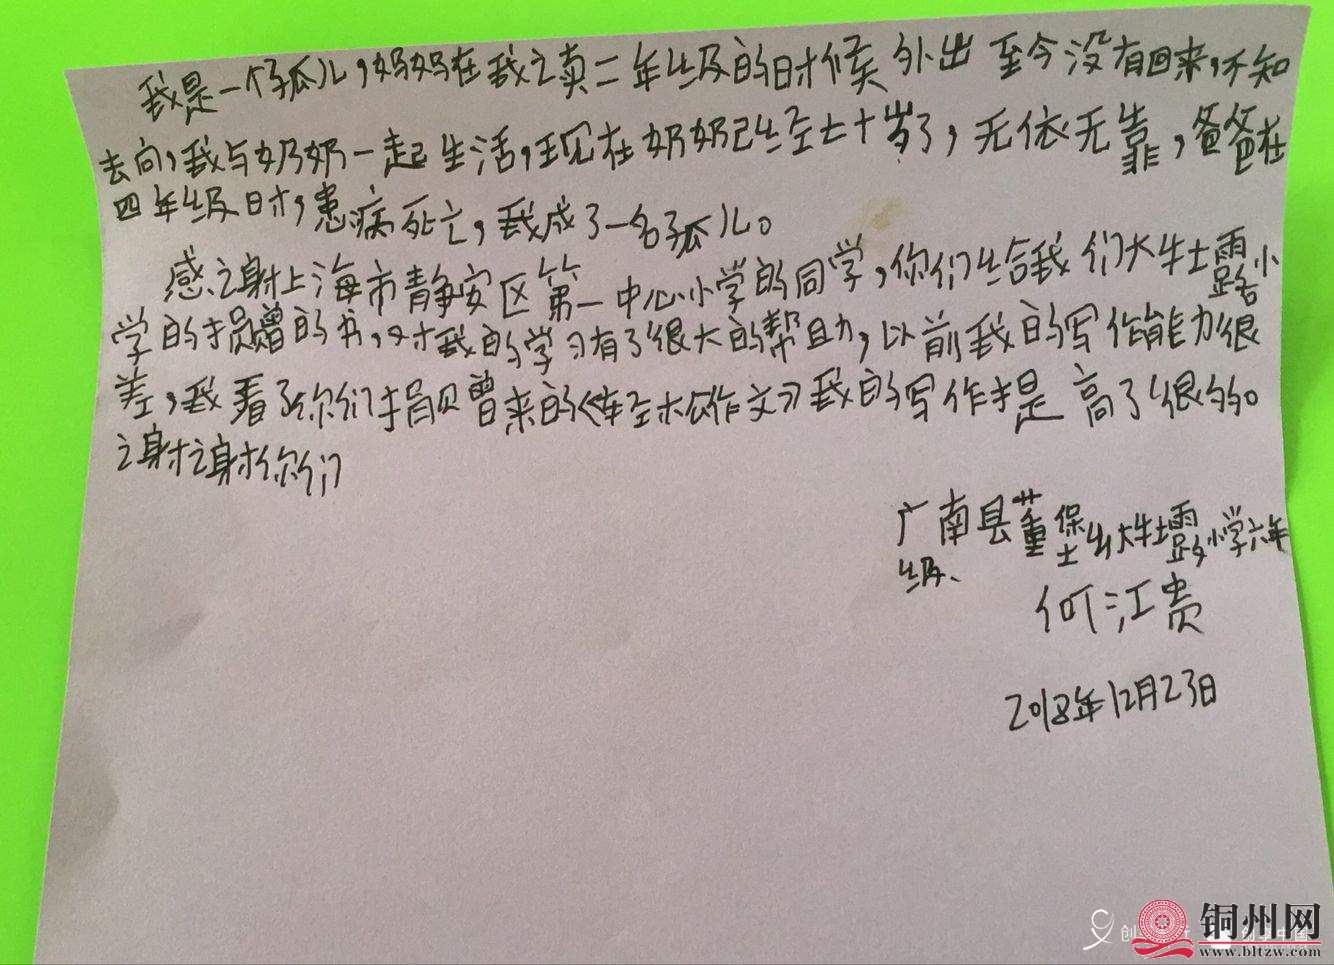 我是一个孤儿，妈妈在我读二年级的时候外出至今没有回来，不知
去向，我与奶奶一起生活，现在奶奶已经七十岁了，无依无靠，爸爸在
四年级时，患病死亡，我成了一名孤儿。
感谢上海市静安区第一中心小学的同学，你们给我们大牛土露小
学的捐赠的书，对我的学习有了很大的帮助，以前我的写作能力很
差，我看了你们捐赠来的《作文》我的写作提高了很多。
谢谢你们
广南县董堡乡大牛土露小学六年
级、
何江贵
2018年12月23日
铜州网
www.bltzw.com